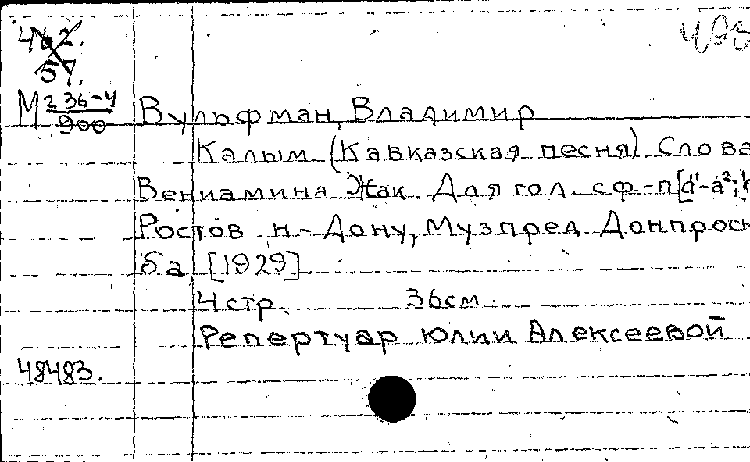 462.
57.
М 236-4
900
Вульфман, Владимир
Калым (Кавказская песня). Слова
Вениамина Жак. Для гол. с ф-п [d¹-a²;
Ростов н-Дону, Музпред Донпрос
ба, [1929]
4 стр. 36см.
Репертуар Юлии Алексеевой
48483.